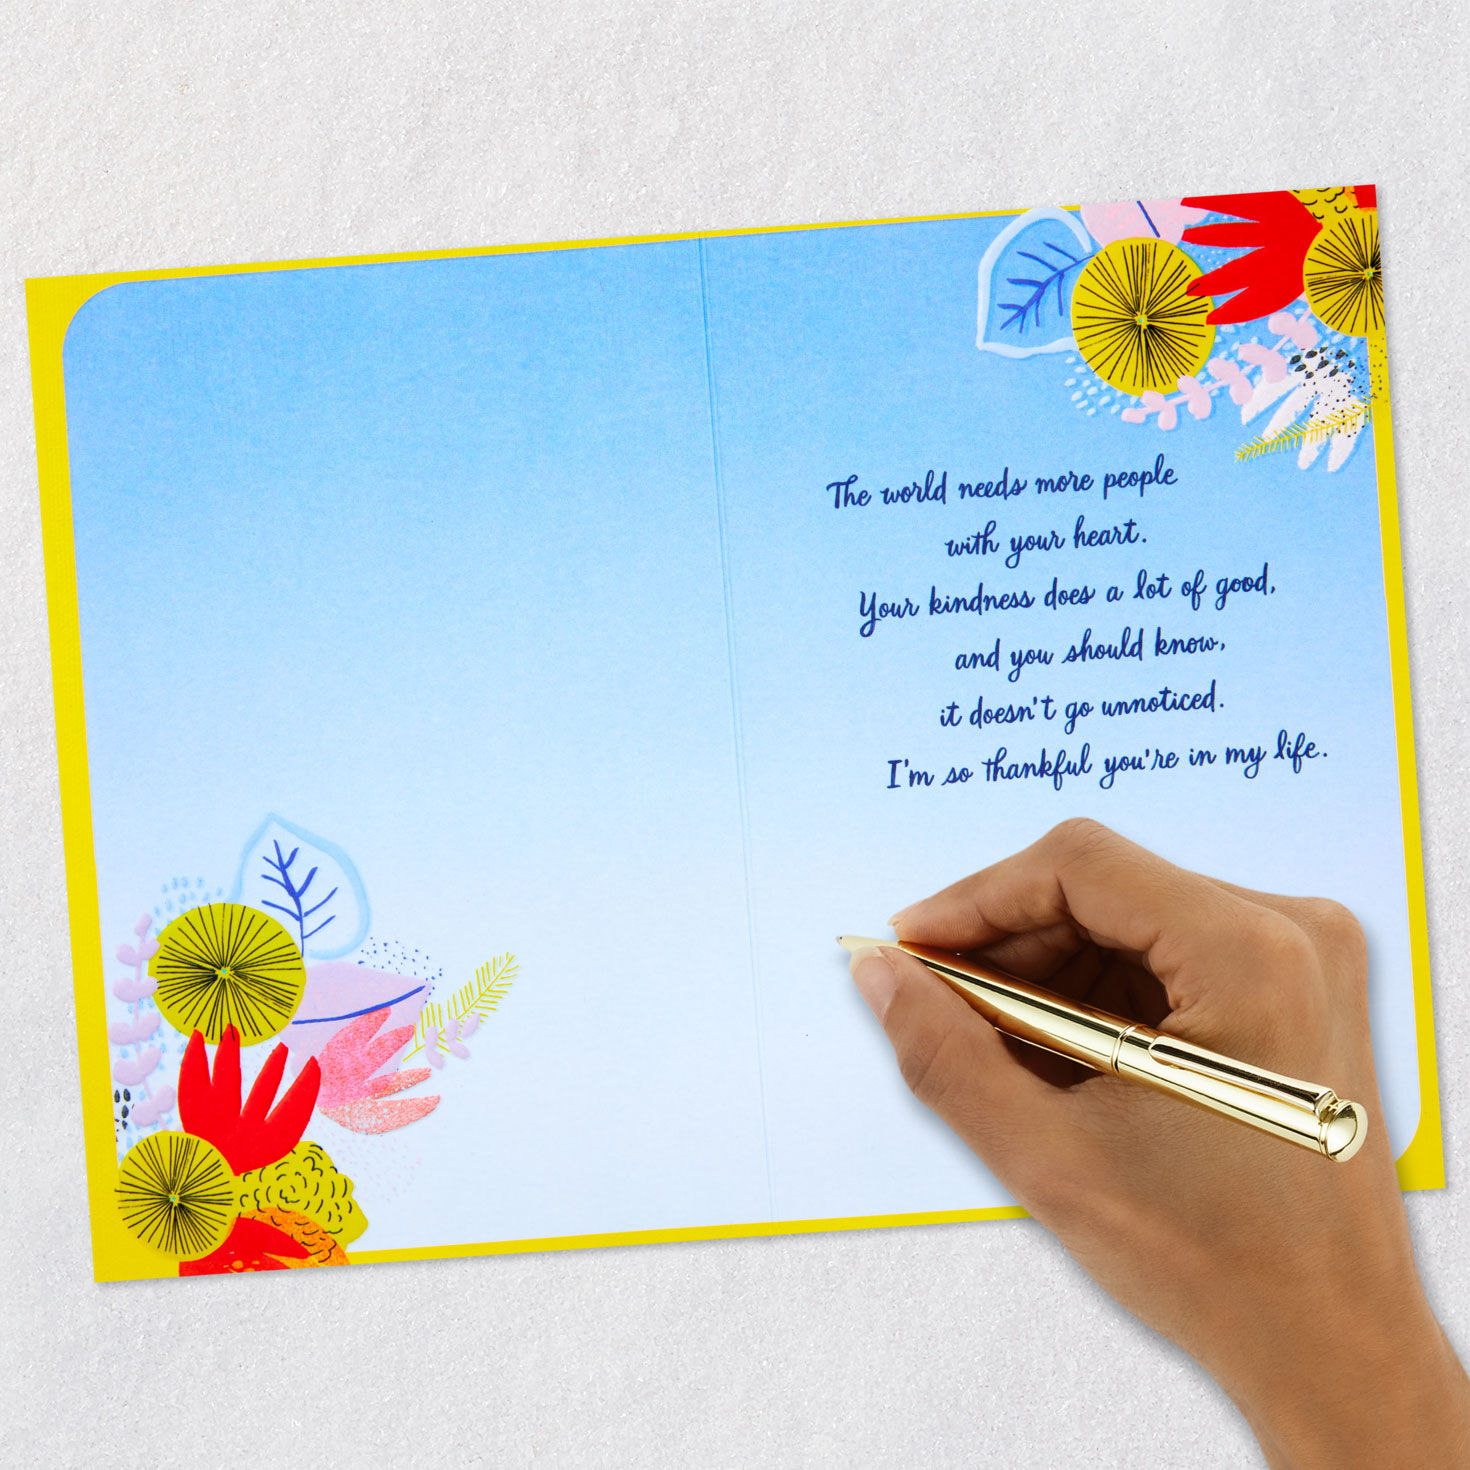 The world needs more people
with your heart.
Your kindness does a lot of good,
and you should know,
it doesn't go unnoticed.
I'm so thankful you're in my life.